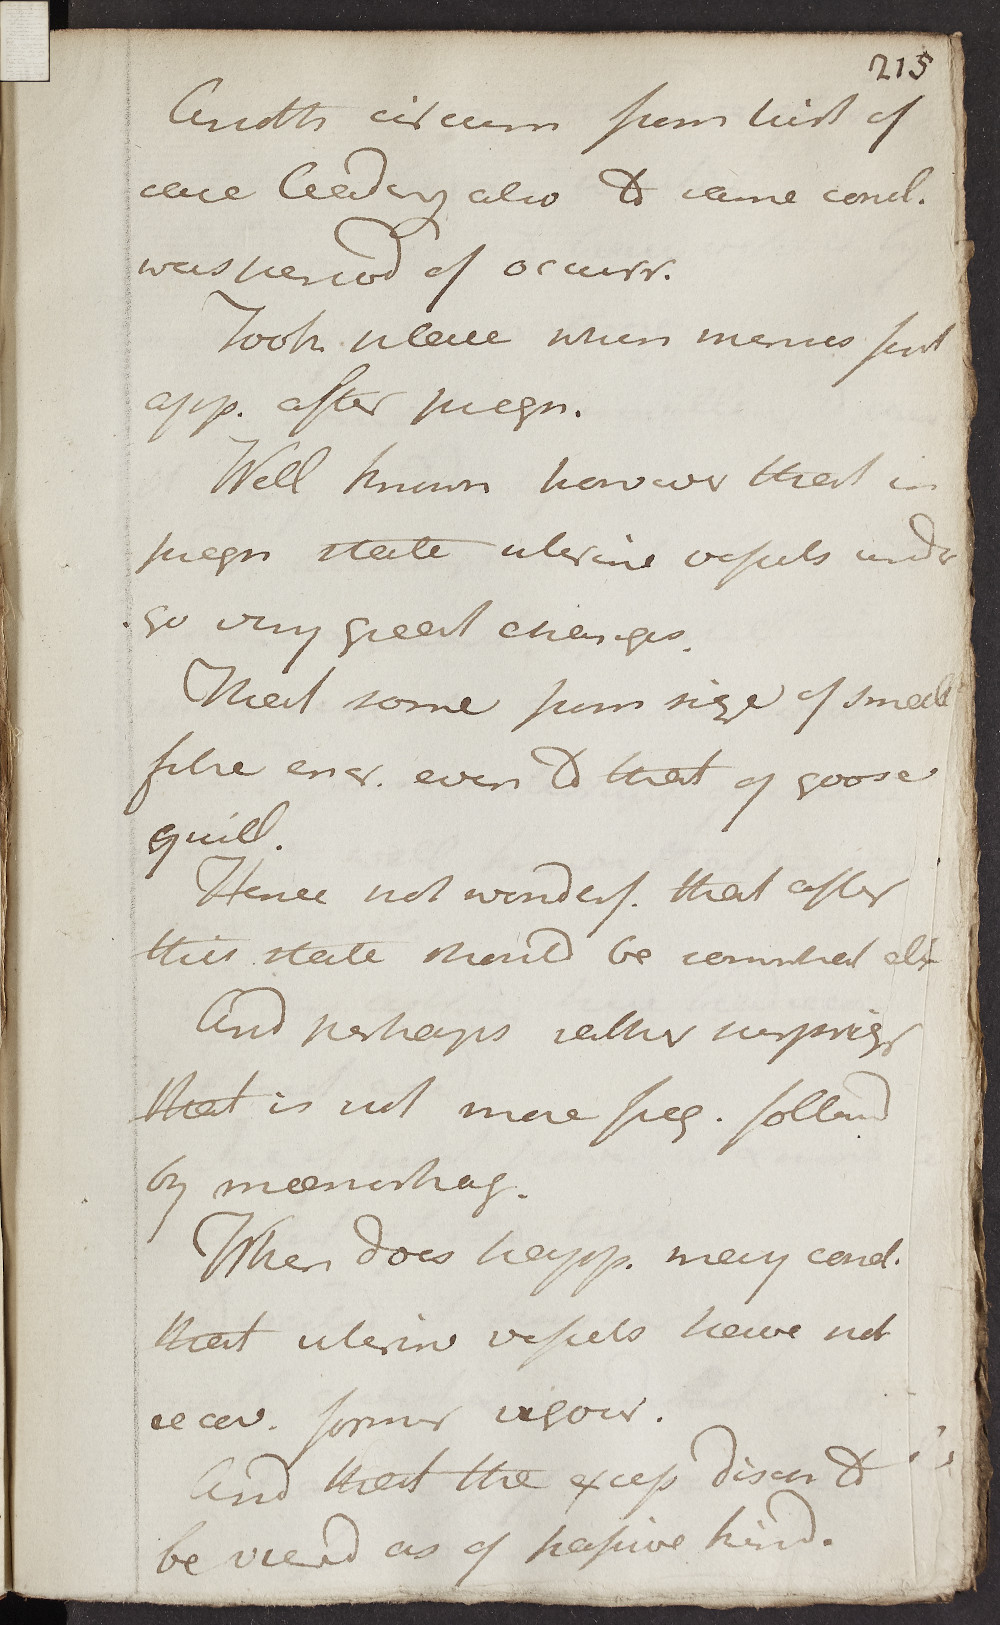 215
Anoth circum from hist of
case leading also to same concl.
was period of occurr.
Took place when menses first
app. after pregn.
Well known however that in
pregn state uterine vessels under
go very great changes.
That some from size of small
fibre encr. even to that of goose
quill.
Hence not wonderf. that after
this state should be somwhat
And perhaps rather surprisg
that is not more freq. follow'd
by menorrhag.
When does happ. may concl.
that uterine vessels have not
recov. former vigour.
And that the excess disch to
be view'd as of passive kind.